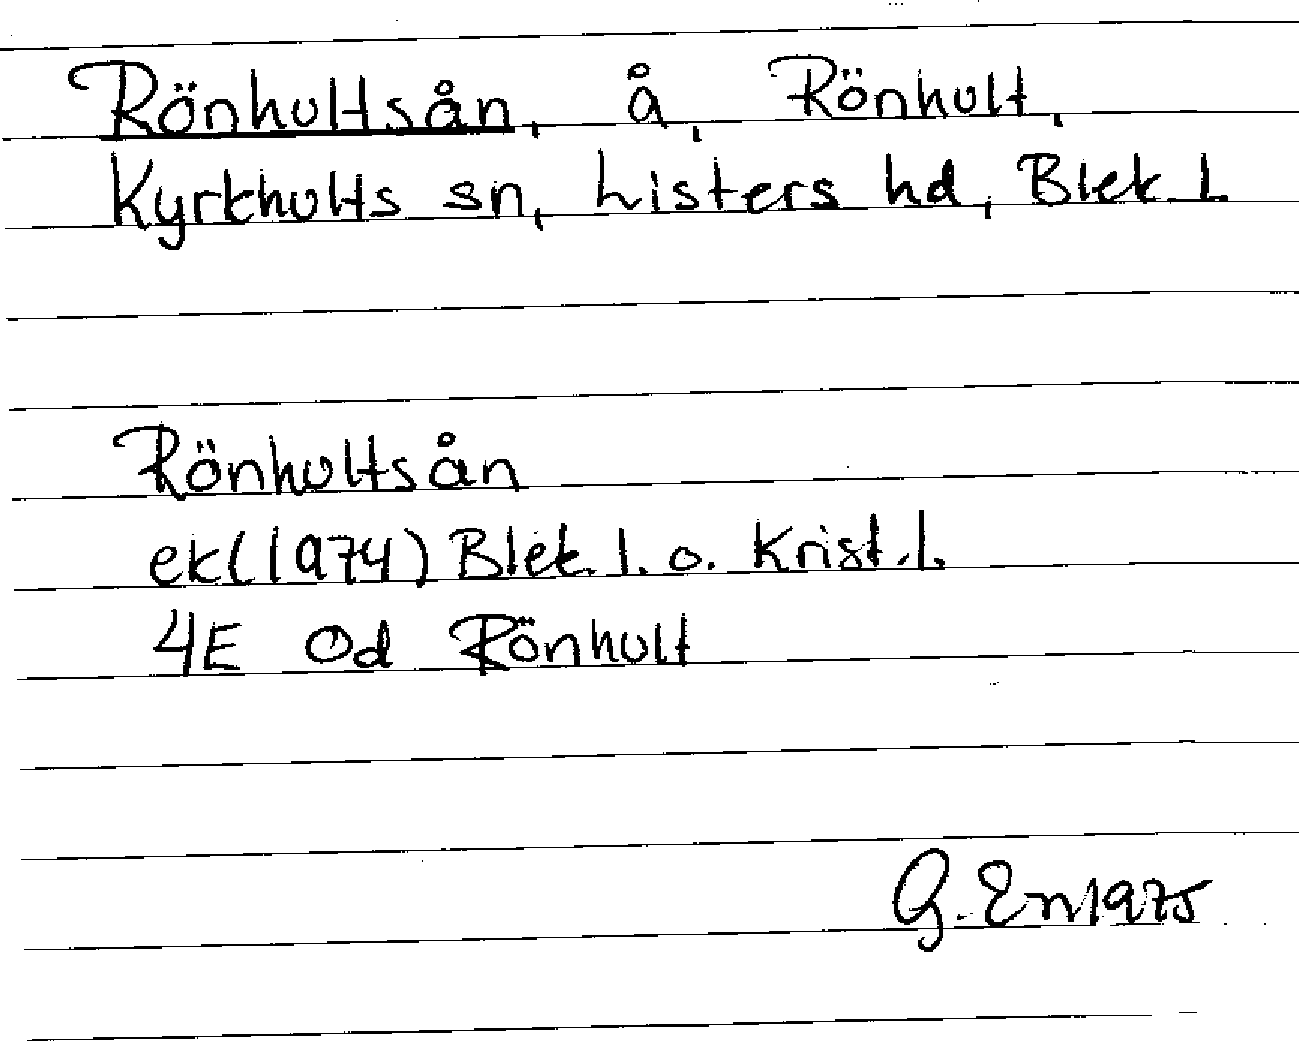 Rönhultsån, å, Rönhult,
Kyrkhults sn, Listers hd, Blek. l.
Rönhultsån
ek (1974) Blek. l. o. Krist. l.
4E 0d Rönhult
G. En 1975